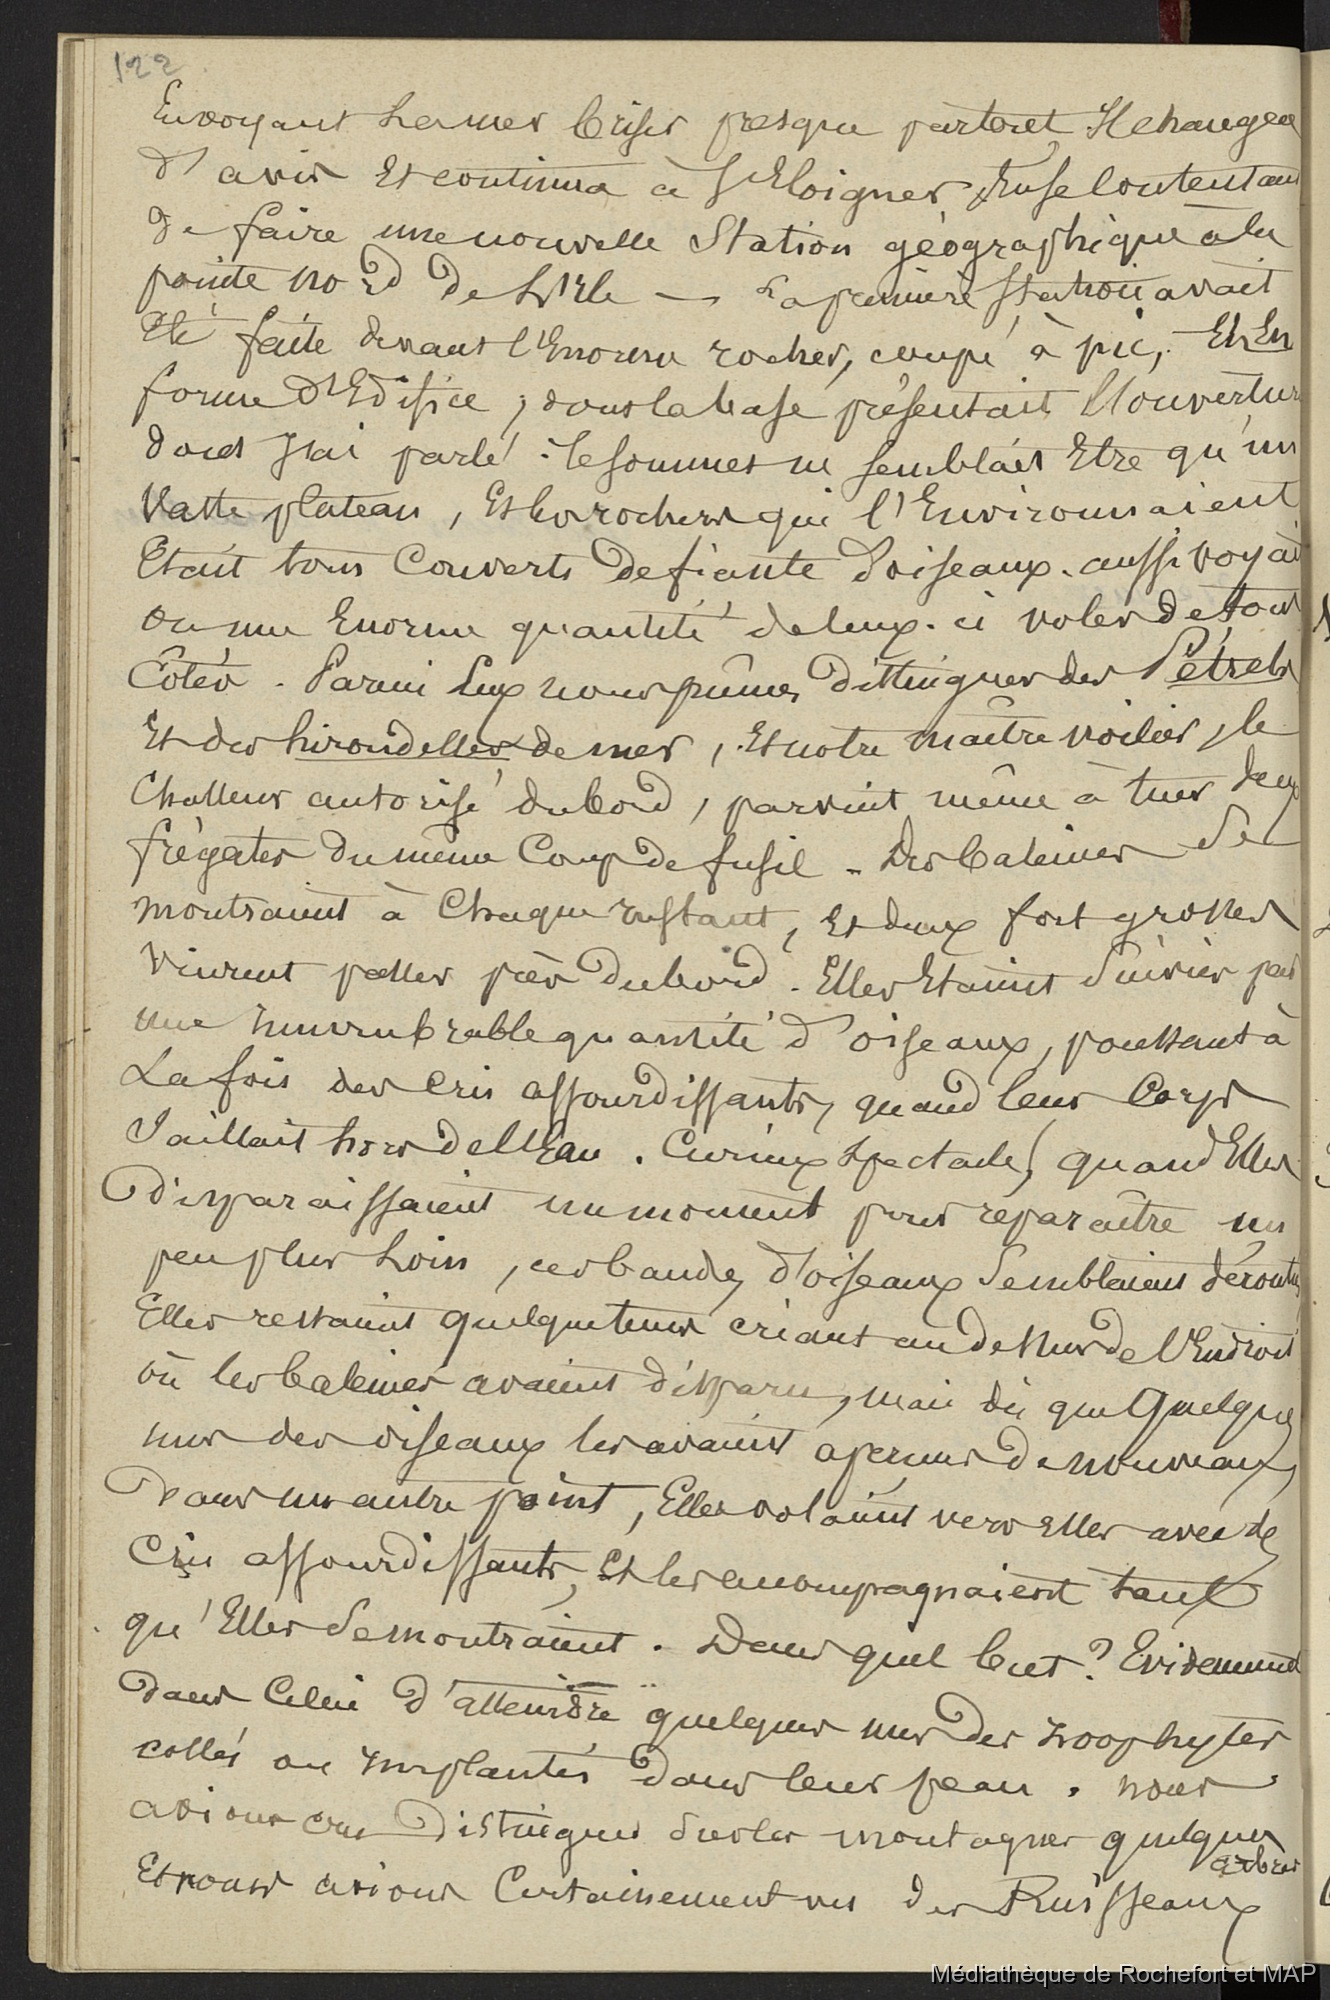 122
En voyant la mer briser presque partout, Il changea
d'avis Et continua à S'Eloigner, En se Contentant
de faire une nouvelle Station géographique à la
pointe nord de L'Ile — La première Station avait
Eté faite devant l'Enorme rocher, coupé à pic, Et En
forme d'Edifice, dont la base présentait l'ouverture
dont J'ai parlé. Le sommet ne semblait Etre qu'un
Vaste plateau, Et les rochers qui l'Environnaient
Etait tous Couverts de fiante d'oiseaux. aussi voyait
on une Enorme quantité de ceux-ci voler de tous
Côtés. Parmi Eux nous pûmes distinguer des Pétrels
Et des hirondelles de mer, Et notre maître voilier, le
Chasseur autorisé du bord, parvint même à tuer deux
frégates du même Coup de fusil - Des baleines Se
montraient à Chaque Instant, Et deux fort grosses
Vinrent passer près du bord. Elles Etaient Suivies par
une Innombrable quantité d'oiseaux, poussant à
La fois des Cris assourdissants, quand leur Corps
Saillait hors de l'Eau. Curieux Spectacle, quand Elles
disparaissaient un moment pour reparaître un
peu plus Loin, ces bandes d'oiseaux Semblaient déroutées
Elles restaient quelque temps criant au dessus de l'Endroit
où les baleines avaient disparu, mais dès que quelques
uns des oiseaux les avaient aperçues de nouveau,
Dans un autre point, Elles volaient vers Elles avec des
Cris assourdissants, Et les accompagnaient tant
qu'Elles Se montraient. Dans quel but? Evidemment
dans Celui d'atteindre quelques uns des zoophytes
collés ou Implantés dans leur peau. nous
avions cru Distinguer sur les montagnes quelques
arbres
Et nous avions Certainement vu des Ruisseaux
Médiathèque de Rochefort et MAP